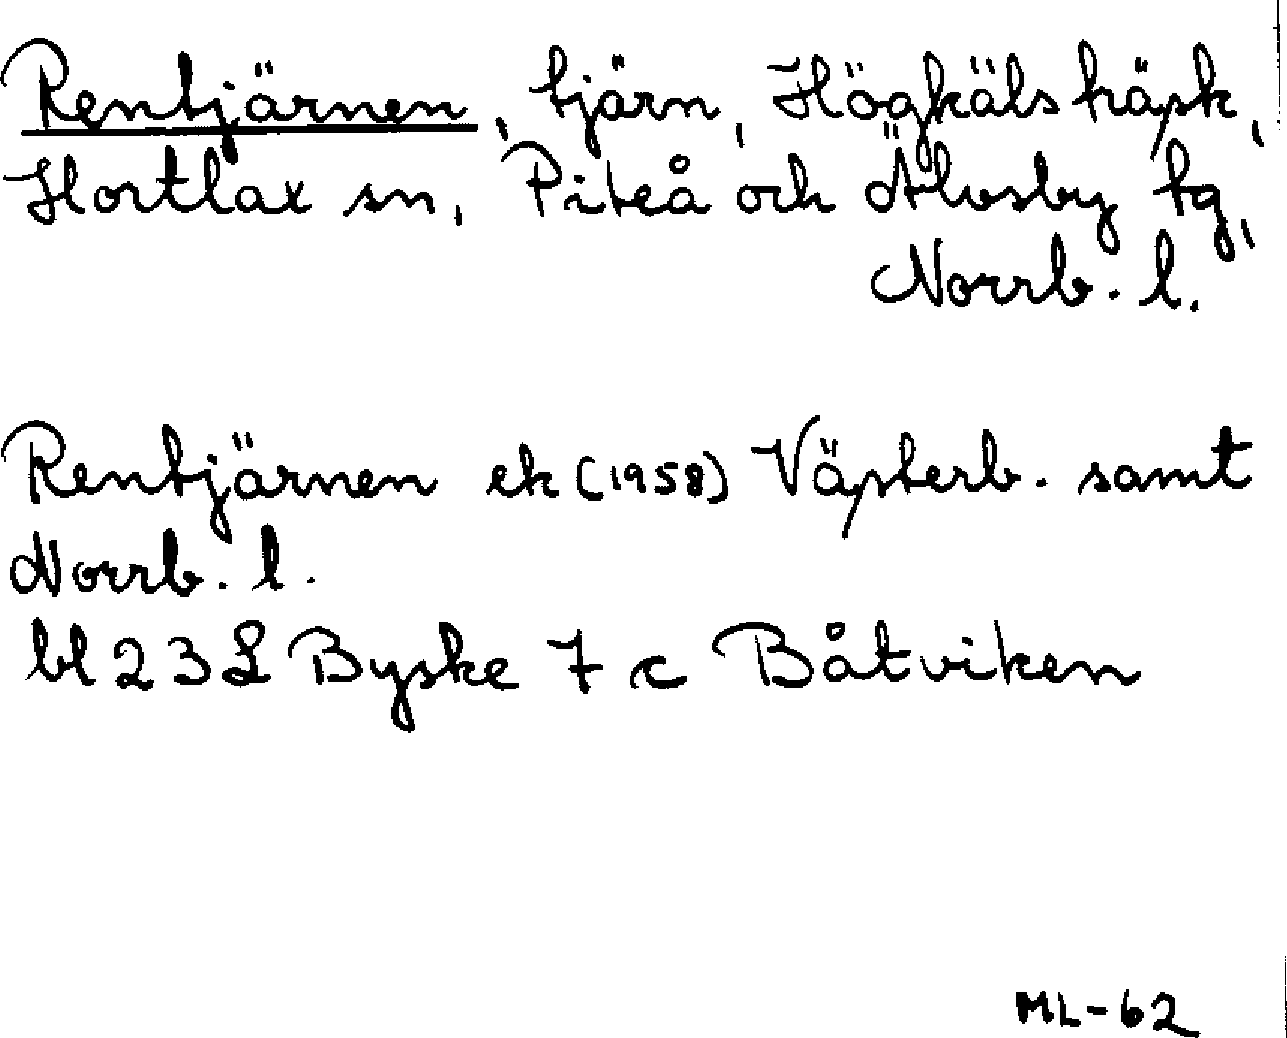 Rentjärnen, tjärn, Högkälsträsk,
Hortlax sn, Piteå och Älvsby tg,
Norrb. l.
Rentjärnen ek (1958) Västerb. samt
Norrb. l.
bl 23 L Byske 7 c Båtviken
ML-62